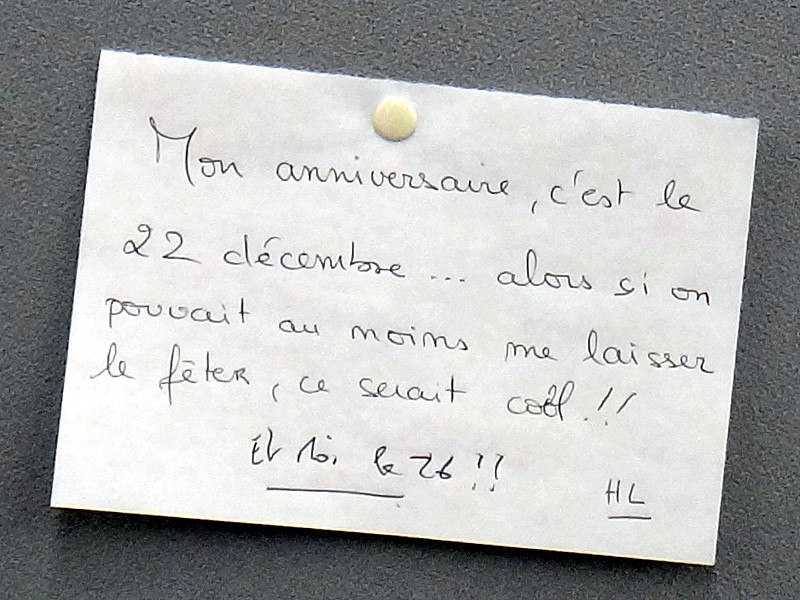 Mon anniversaire, c'est le
22 décembre... alors si on
pouvait au moins me laisser
le fêter, ce serait cool !!
Et moi le 26 !!
HL